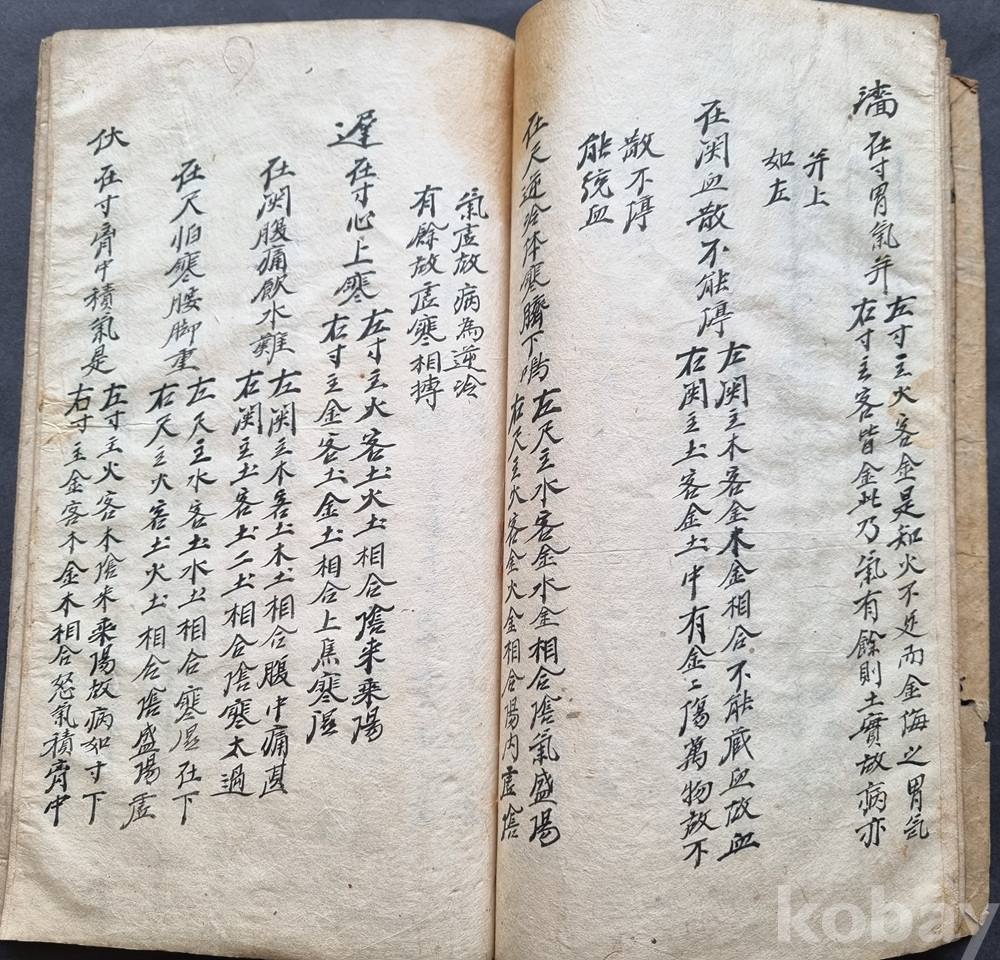 濇 在寸胃氣并
左寸主火客金是知火不近而金侮之胃氣
右寸主客皆金此乃氣有餘則土實故病亦
并上
如左
在関血散不能停
左関主木客金木金相合不能蔵血故血
右関主土客金土中有金二傷萬物故不
散不停
能統血
在尺逆冷体寒臍下鳴
左尺主水客金水金相合陰氣盛陽
右尺主火客金火金相合陽内虚陰
氣虚故病為逆冷
有餘故虚寒相搏
遲 在寸心上寒
左寸主火客土火土相合陰来乘陽
右寸主金客土金土相合上焦寒湿
在関腹痛飲水難
左関主木客土木土相合腹中痛甚
右関主土客土二土相合陰寒太過
在尺怕寒腰脚重
左尺主水客土水土相合寒湿在下
右尺主火客土火土相合陰盛陽虚
伏 在寸胷中積氣是
左寸主火客木陰来乘陽故病如寸下
右寸主金客木金木相合怒氣積胷中
kobay